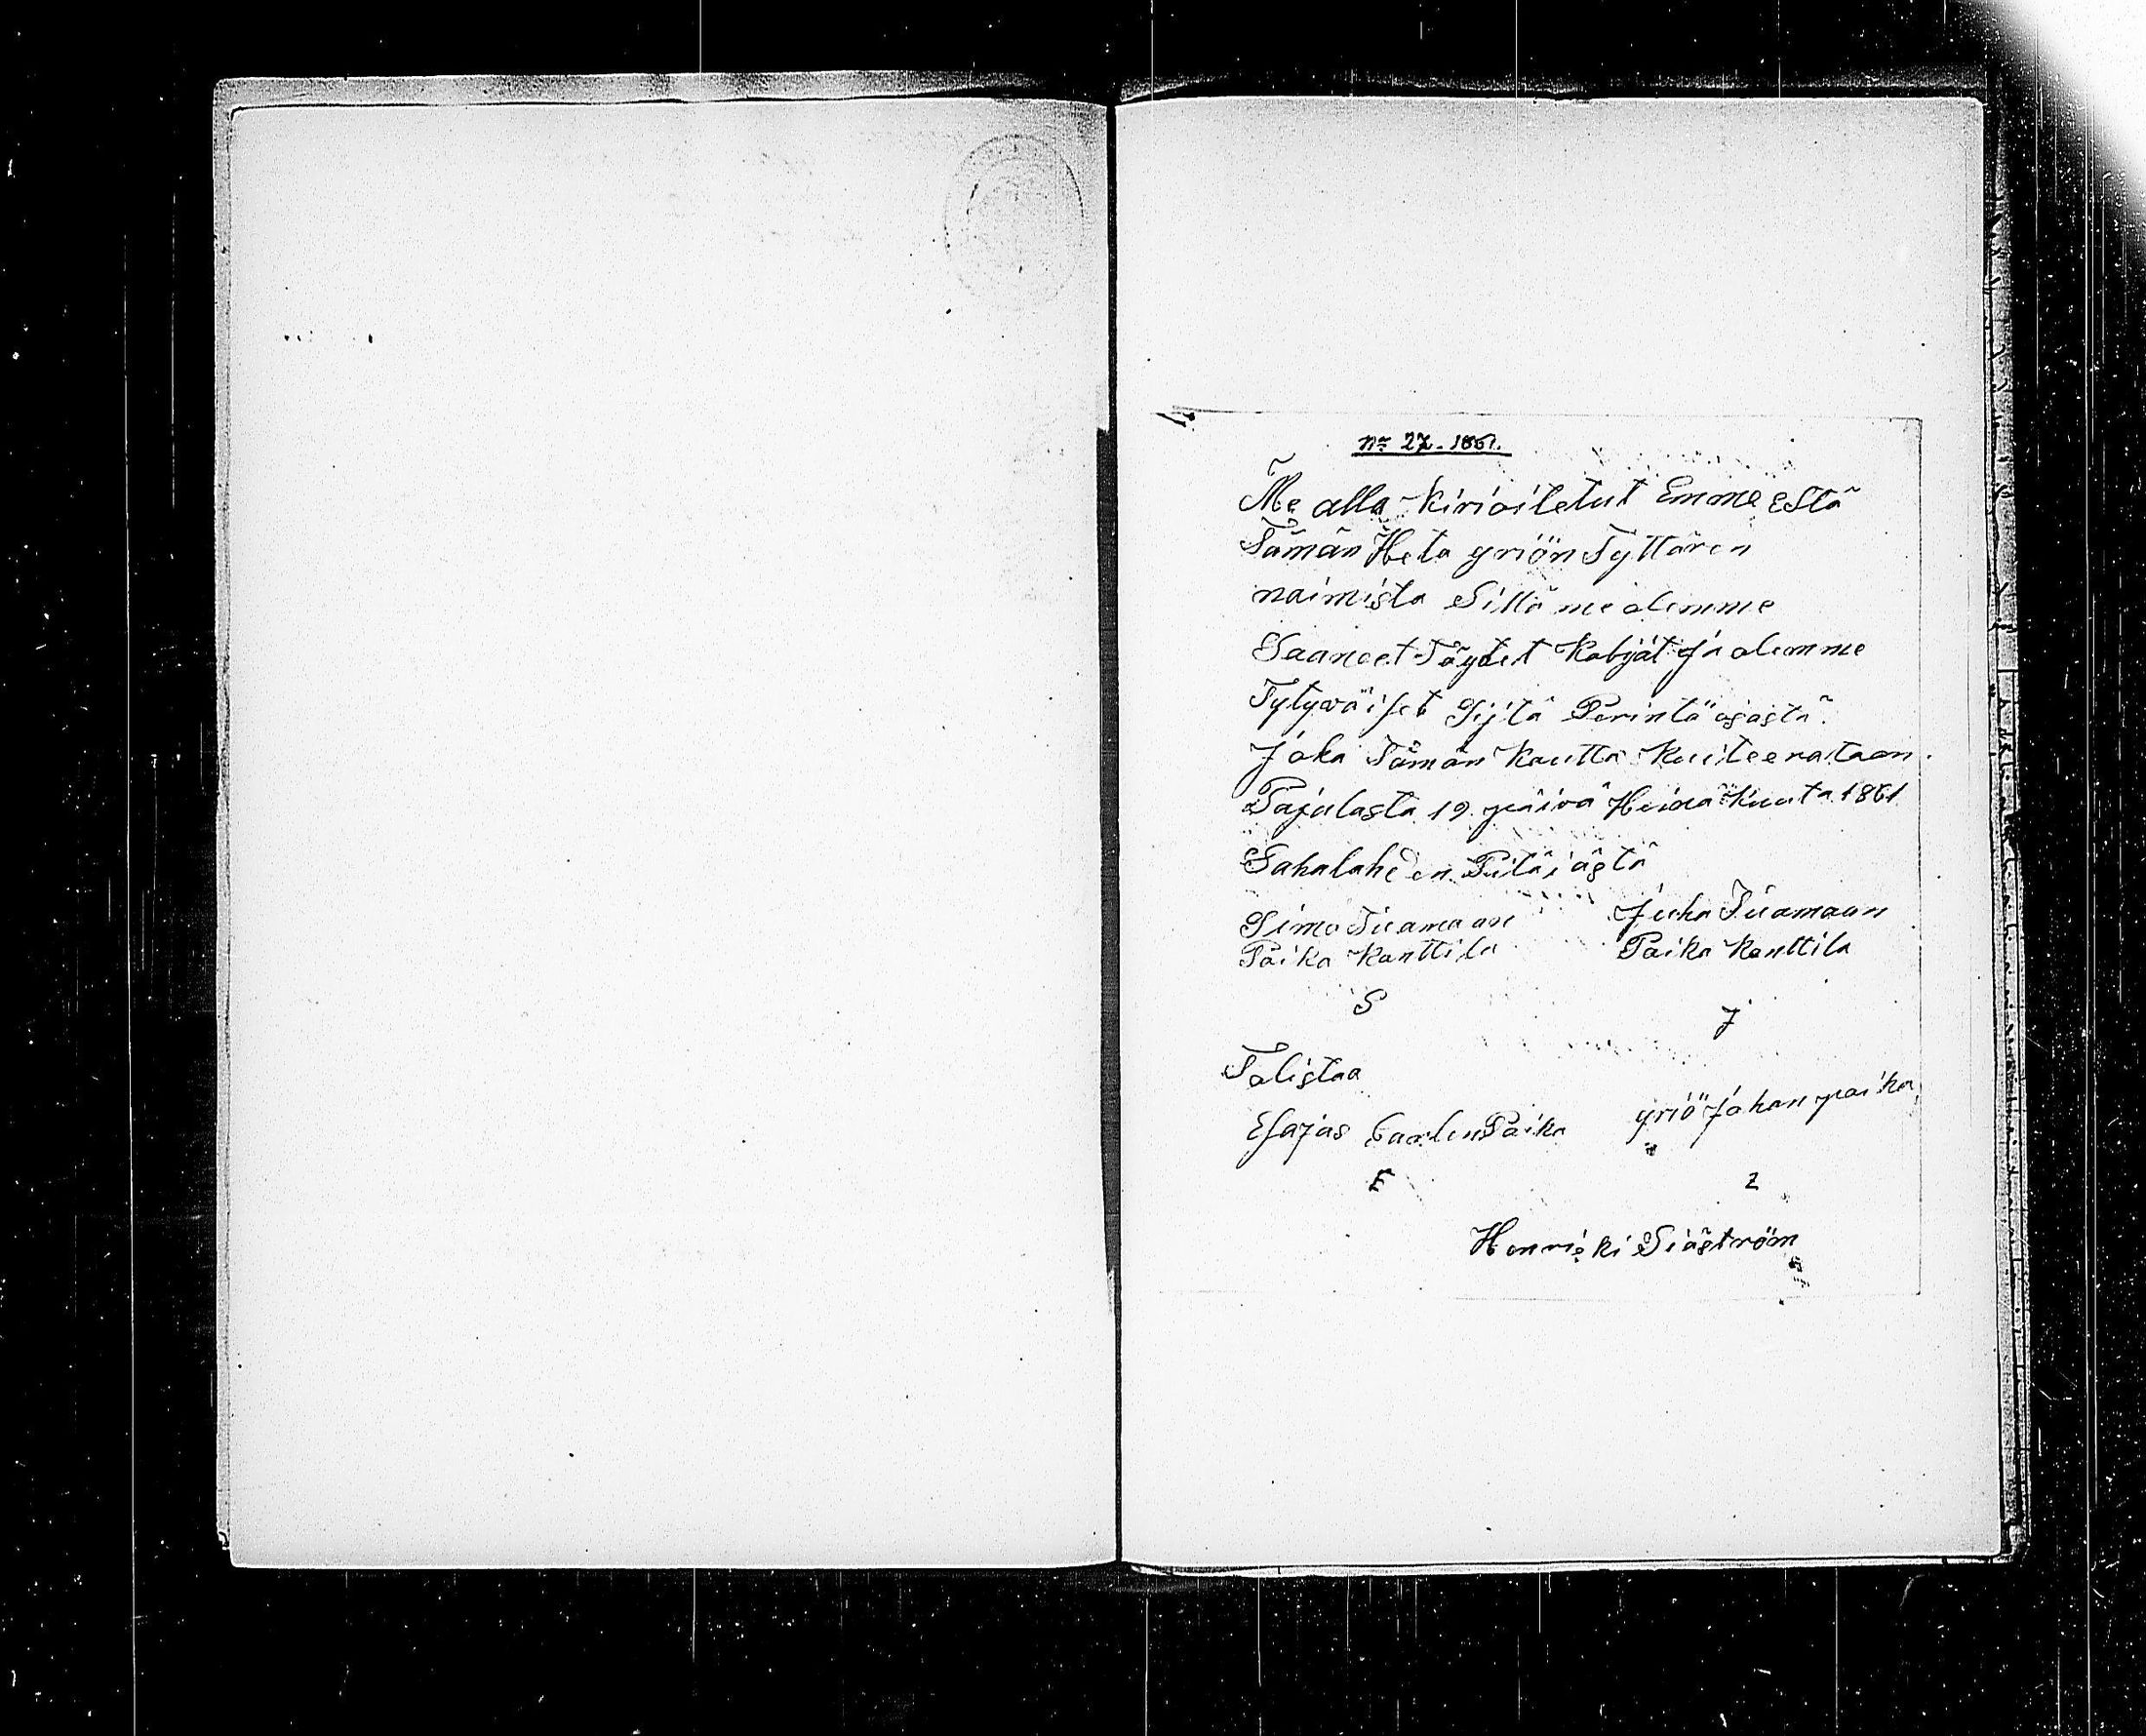 No 27. 1861.
Me alla kirioitetut Emme Estä
Tämän Heta yriön Tyttären
naimista Sillä me olemme
Saaneet Täydet Kabját Ja olemme
Tytywäiset Sijtä Perintä osasta.
Joka Tämän Kautta Kuiteerataan.
Pajulasta 19. päivä Heinä Kuuta 1861
Sahalahden Pitäiästä
Simo Tuamaan Juha Tuamaan
Poika Kanttila Poika Kanttila
S J
Tolistaa
Esajas Carlen Poika yriö Johan poika
E Z
Henriski Siäström